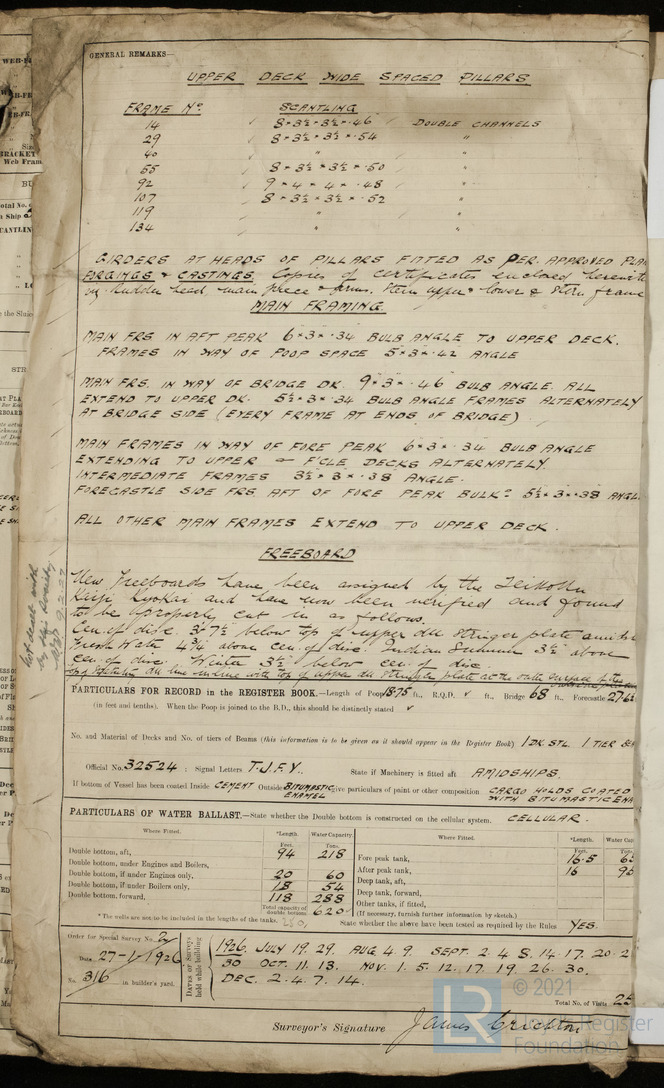 GENERAL REMARKS—
UPPER DECK WIDE SPACED PILLARS
FRAME No. SCANTLING
14 8 × 3½ × 3½ × .46 DOUBLE CHANNELS
29 8 × 3½ × 3½ × .54 "
40 " "
55 8 × 3½ × 3½ × .50 "
92 9 × 4 × 4 × .48 "
107 8 × 3½ × 3½ × .52 "
119 " "
134 " "
GIRDERS AT HEADS OF PILLARS FITTED AS PER APPROVED PLAN
FORGINGS & CASTINGS. Copies of certificates enclosed herewith
rudder head, main piece & arms. Stem upper & lower & Stern frame
MAIN FRAMING.
MAIN FRS IN AFT PEAK 6 × 3 × .34 BULB ANGLE TO UPPER DECK.
FRAMES IN WAY OF POOP SPACE 5 × 3 × .42 ANGLE
MAIN FRS. IN WAY OF BRIDGE DK. 9 × 3 × .46 BULB ANGLE. ALL
EXTEND TO UPPER DK. 5½ × 3 × .34 BULB ANGLE FRAMES ALTERNATELY
AT BRIDGE SIDE (EVERY FRAME AT ENDS OF BRIDGE)
MAIN FRAMES IN WAY OF FORE PEAK 6 × 3 × .34 BULB ANGLE
EXTENDING TO UPPER & F'CLE DECKS ALTERNATELY.
INTERMEDIATE FRAMES 3½ × 3 × .38 ANGLE.
FORECASTLE SIDE FRS. AFT OF FORE PEAK BULKD 5½ × 3 × .38 ANGL
ALL OTHER MAIN FRAMES EXTEND TO UPPER DECK.
FREEBOARD
New Freeboards have been assigned by the Teikoku
Kaiji Kyokai and have now been verified and found
to be properly cut in as follows.
Cen. of disc. 3'-7½ below top of upper dk stringer plate amids
Fresh Water 4¾ above cen. of disc. Indian Summer 3½ above
cen. of disc. Winter 3½ below cen. of disc.
top of Statutory dk. line in line with top of upper dk stringer plate at the outer surface of the
PARTICULARS FOR RECORD in the REGISTER BOOK.—Length of Poop 18.75 ft., R.Q.D. ✓ ft., Bridge 68 ft., Forecastle 27.6
(in feet and tenths). When the Poop is joined to the B.D., this should be distinctly stated ✓
No. and Material of Decks and No. of tiers of Beams (this information is to be given as it should appear in the Register Book) 1 DK. STL. 1 TIER
Official No. 32524 ; Signal Letters T.J.F.Y. State if Machinery is fitted aft AMIDSHIPS.
If bottom of Vessel has been coated Inside CEMENT Outside BITUMASTIC ENAMEL give particulars of paint or other composition CARGO HOLDS COATED
WITH BITUMASTIC ENA
PARTICULARS OF WATER BALLAST.—State whether the Double bottom is constructed on the cellular system. CELLULAR.
Where Fitted. *Length. Water Capacity. Where Fitted. *Length. Water Cap
Feet. Tons. Feet. Tons.
Double bottom, aft, 94 218 Fore peak tank, 16.5
Double bottom, under Engines and Boilers, After peak tank, 16
Double bottom, if under Engines only, 20 60 Deep tank, aft,
Double bottom, if under Boilers only, 18 54 Deep tank, forward,
Double bottom, forward, 118 288 Other tanks, if fitted,
Total capacity of double bottom 620 (If necessary, furnish further information by sketch.)
* The units are not to be included in the lengths of the tanks. State whether the above have been tested as required by the Rules YES.
Order for Special Survey No. 24
Date 27-1-1926
No. 316 in builder's yard.
DATES of Surveys held while building
1926. JULY 19. 29. AUG 4. 9. SEPT. 2. 4. 8. 14. 17. 20. 2
30 OCT. 11. 13. NOV. 1. 5. 12. 17. 19. 26. 30.
DEC. 2. 4. 7. 14.
Total No. of Visits 25
Surveyor's Signature James Crichton
© 2021
LR Lloyd's Register
Foundation